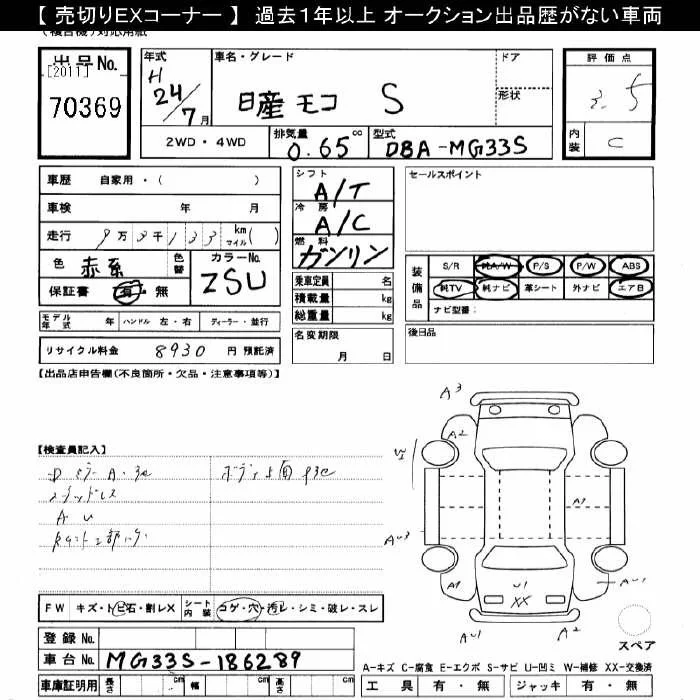 【 売切りEXコーナー 】 過去1年以上 オークション出品歴がない車両
(複合機)対応用紙
出品No.
[2011]
70369
年式
H
24/7月
車名・グレード
日産 モコ S
ドア
形状
評価点
3.5
内装 C
2WD・4WD
排気量 0.65 cc
型式 DBA-MG33S
車歴 自家用・( )
車検 年 月
走行 9万3千133 km マイル( )
色 赤系 色替
カラーNo. ZSU
保証書 有・無
シフト A/T
冷房 A/C
燃料 ガソリン
乗車定員 名
積載量 kg
総重量 kg
セールスポイント
装備品
S/R 純A/W P/S P/W ABS
純TV 純ナビ 革シート 外ナビ エアB
ナビ型番:
モデル年式 年 ハンドル 左・右 ディーラー・並行
リサイクル料金 8930 円 預託済
名変期限
月 日
後日品
【出品店申告欄(不良箇所・欠品・注意事項等)】
A3
A2
【検査員記入】
A1
A1
U1
XX
A2
FW キズ・トビ石・割レX
シート内装 コゲ・穴・汚レ・シミ・破レ・スレ
スペア
登録No.
車台No. MG33S-186289
A-キズ C-腐食 E-エクボ S-サビ U-凹ミ W-補修 XX-交換済
車庫証明用 長さ cm 幅 cm 高さ cm
工具 有・無 ジャッキ 有・無